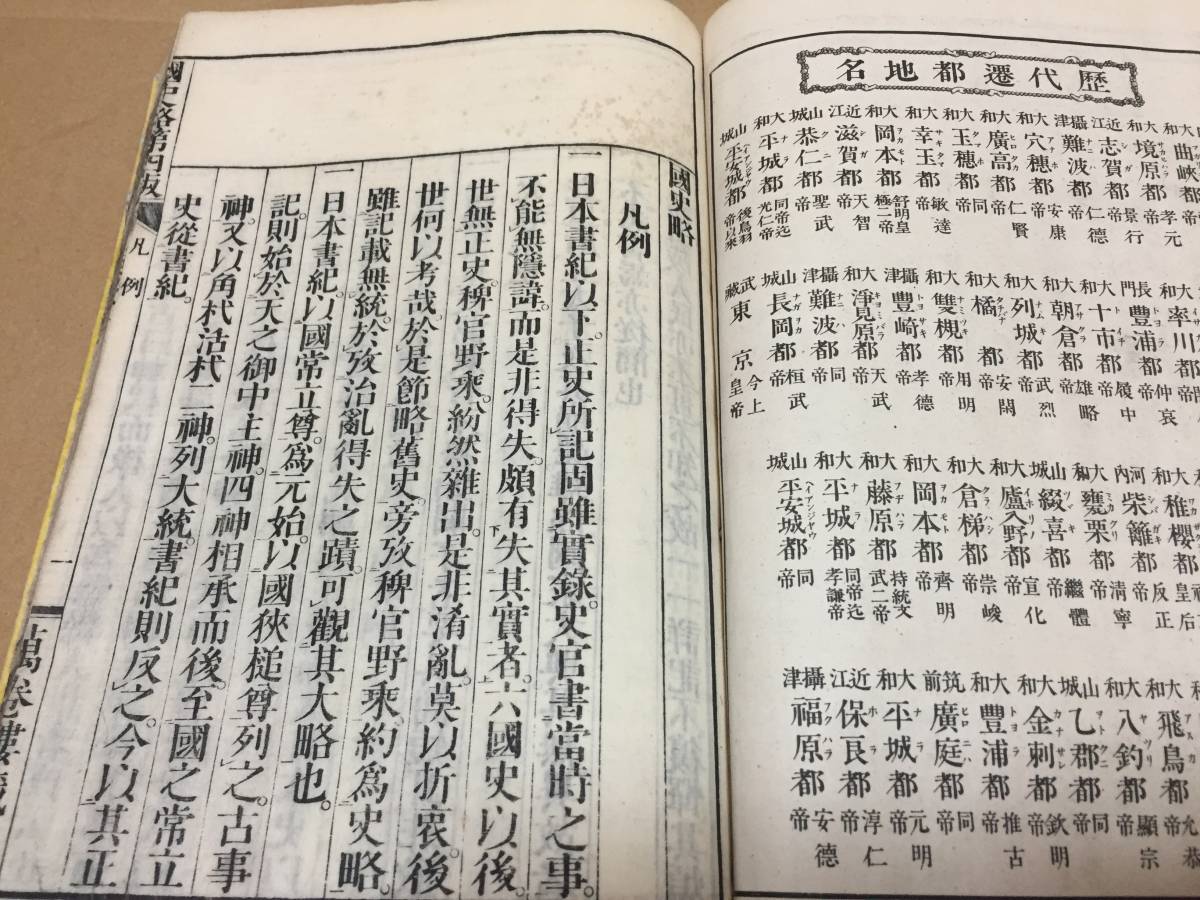 歷代遷都地名
曲峽都
大和 境原都 孝元帝
近江 志賀都 景行帝
攝津 難波都 仁德帝
大和 穴穗都 安康帝
大和 廣高都 仁賢帝
大和 玉穗都 同帝
大和 幸玉都 敏達帝
大和 岡本都 舒明皇極二帝
近江 滋賀都 天智帝
山城 恭仁都 聖武帝
大和 平城都 同帝迄光仁帝
山城 平安城都 後鳥羽帝以來
率川都
長門 豐浦都 仲哀帝
大和 十市都 履中帝
大和 朝倉都 雄略帝
大和 列城都 武烈帝
大和 橘都 安閑帝
大和 雙槻都 用明帝
攝津 豐崎都 孝德帝
大和 淨見原都 天武帝
攝津 難波都 同帝
山城 長岡都 桓武帝
武藏 東京 今上皇帝
稚櫻都
河內 柴籬都 反正帝
大和 甕栗都 清寧帝
山城 綴喜都 繼體帝
大和 廬入野都 宣化帝
大和 倉梯都 崇峻帝
大和 岡本都 齊明帝
大和 藤原都 持統文武二帝
大和 平城都 同帝迄孝謙帝
山城 平安城都 同帝
飛鳥都 允恭
大和 八釣都 顯宗帝
山城 乙郡都 同帝
大和 金刺都 欽明帝
大和 豐浦都 推古帝
筑前 廣庭都 同帝
大和 平城都 元明帝
近江 保良都 淳仁帝
攝津 福原都 安德帝
國史略
凡例
一日本書紀以下。正史所記固雖實錄。史官書當時之事。
不能無隱諱。而是非得失。頗有失其實者。六國史以後。
世無正史。稗官野乘。紛然雜出。是非淆亂。莫以折衷。後
世何以考哉。於是節略舊史。旁攷稗官野乘。約爲史略。
雖記載無統。於攷治亂得失之蹟。可觀其大略也。
一日本書紀。以國常立尊。爲元始。以國狹槌尊列之。古事
記。則始於天之御中主神。四神相承而後。至國之常立
神。又以角杙活杙二神。列大統。書紀則反之。今以其正
史從書紀。
國史略第四版
凡例
一
萬卷樓藏